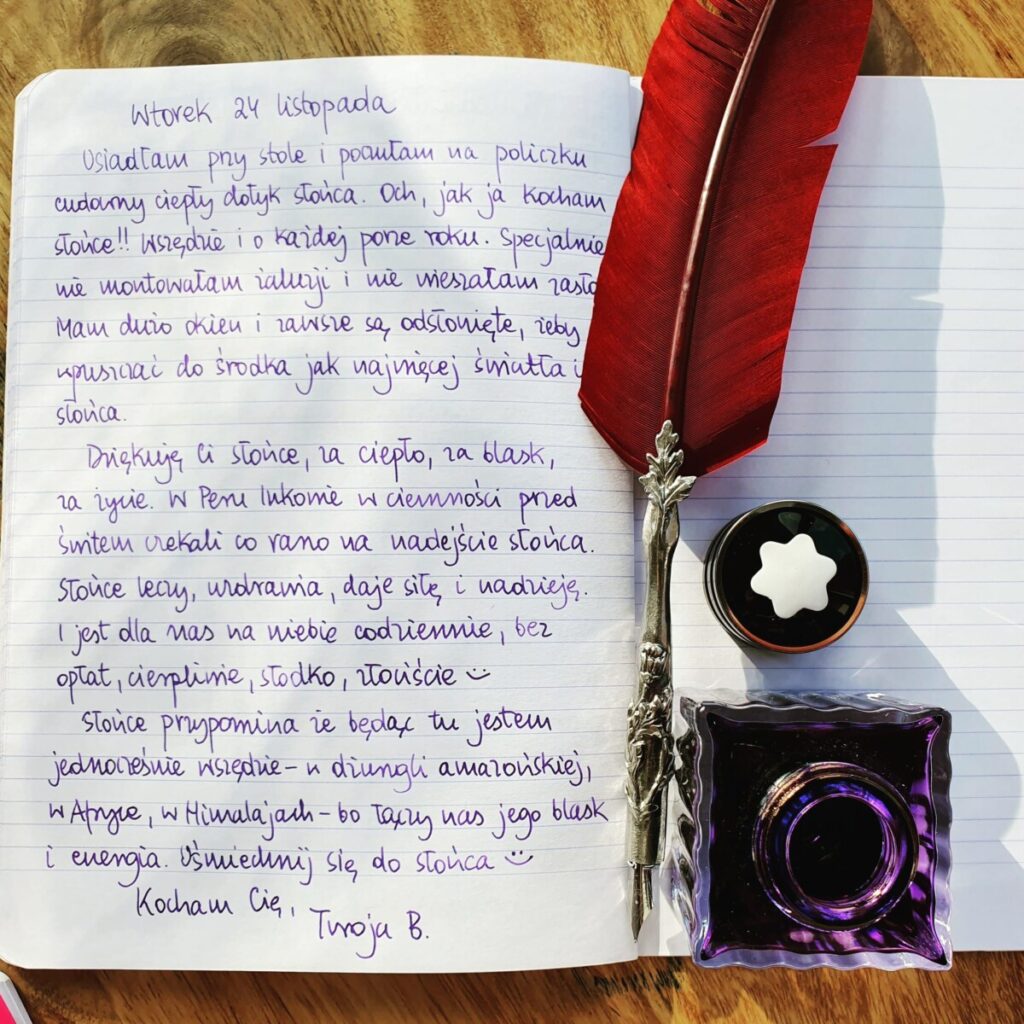 Wtorek 24 listopada
Usiadłam przy stole i poczułam na policzku
cudowny ciepły dotyk słońca. Och, jak ja kocham
słońce!! Wszędzie i o każdej porze roku. Specjalnie
nie montowałam żaluzji i nie wieszałam zasło
Mam dużo okien i zawsze są odsłonięte, żeby
wpuszczać do środka jak najwięcej światła i
słońca.
Dziękuję Ci słońce, za ciepło, za blask,
za życie. W Peru Inkowie w ciemności przed
świtem czekali co rano na nadejście słońca.
Słońce leczy, uzdrawia, daje siłę i nadzieję.
I jest dla nas na niebie codziennie, bez
opłat, cierpliwie, słodko, złociście
Słońce przypomina że będąc tu jestem
jednocześnie wszędzie – w dżungli amazońskiej,
w Afryce, w Himalajach – bo łączy nas jego blask
i energia. Uśmiechnij się do słońca
Kocham Cię,
Twoja B.